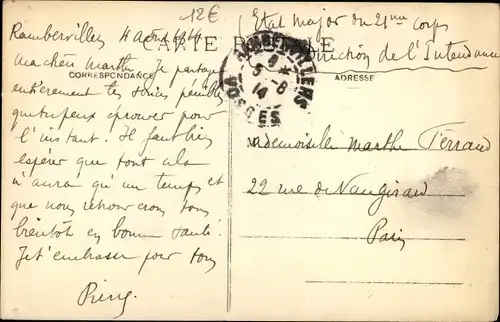 12€
Rambervillers 4 Août 1914
(Etat Major du 21me Corps
Direction de l'Intendance)
CARTE POSTALE
CORRESPONDANCE
ADRESSE
RAMBERVILLERS
5-8
14
VOSGES
Ma chère Marthe. Je partage
entièrement tes soucis pénibles
que tu peux éprouver pour
l'instant. Il faut bien
espérer que tout cela
n'aura qu'un temps et
que nous nous retrouverons tous
bientôt en bonne santé.
Je t'embrasse pour tous
Pierre
Mademoiselle Marthe Ferrand
22 rue de Vaugirard
Paris